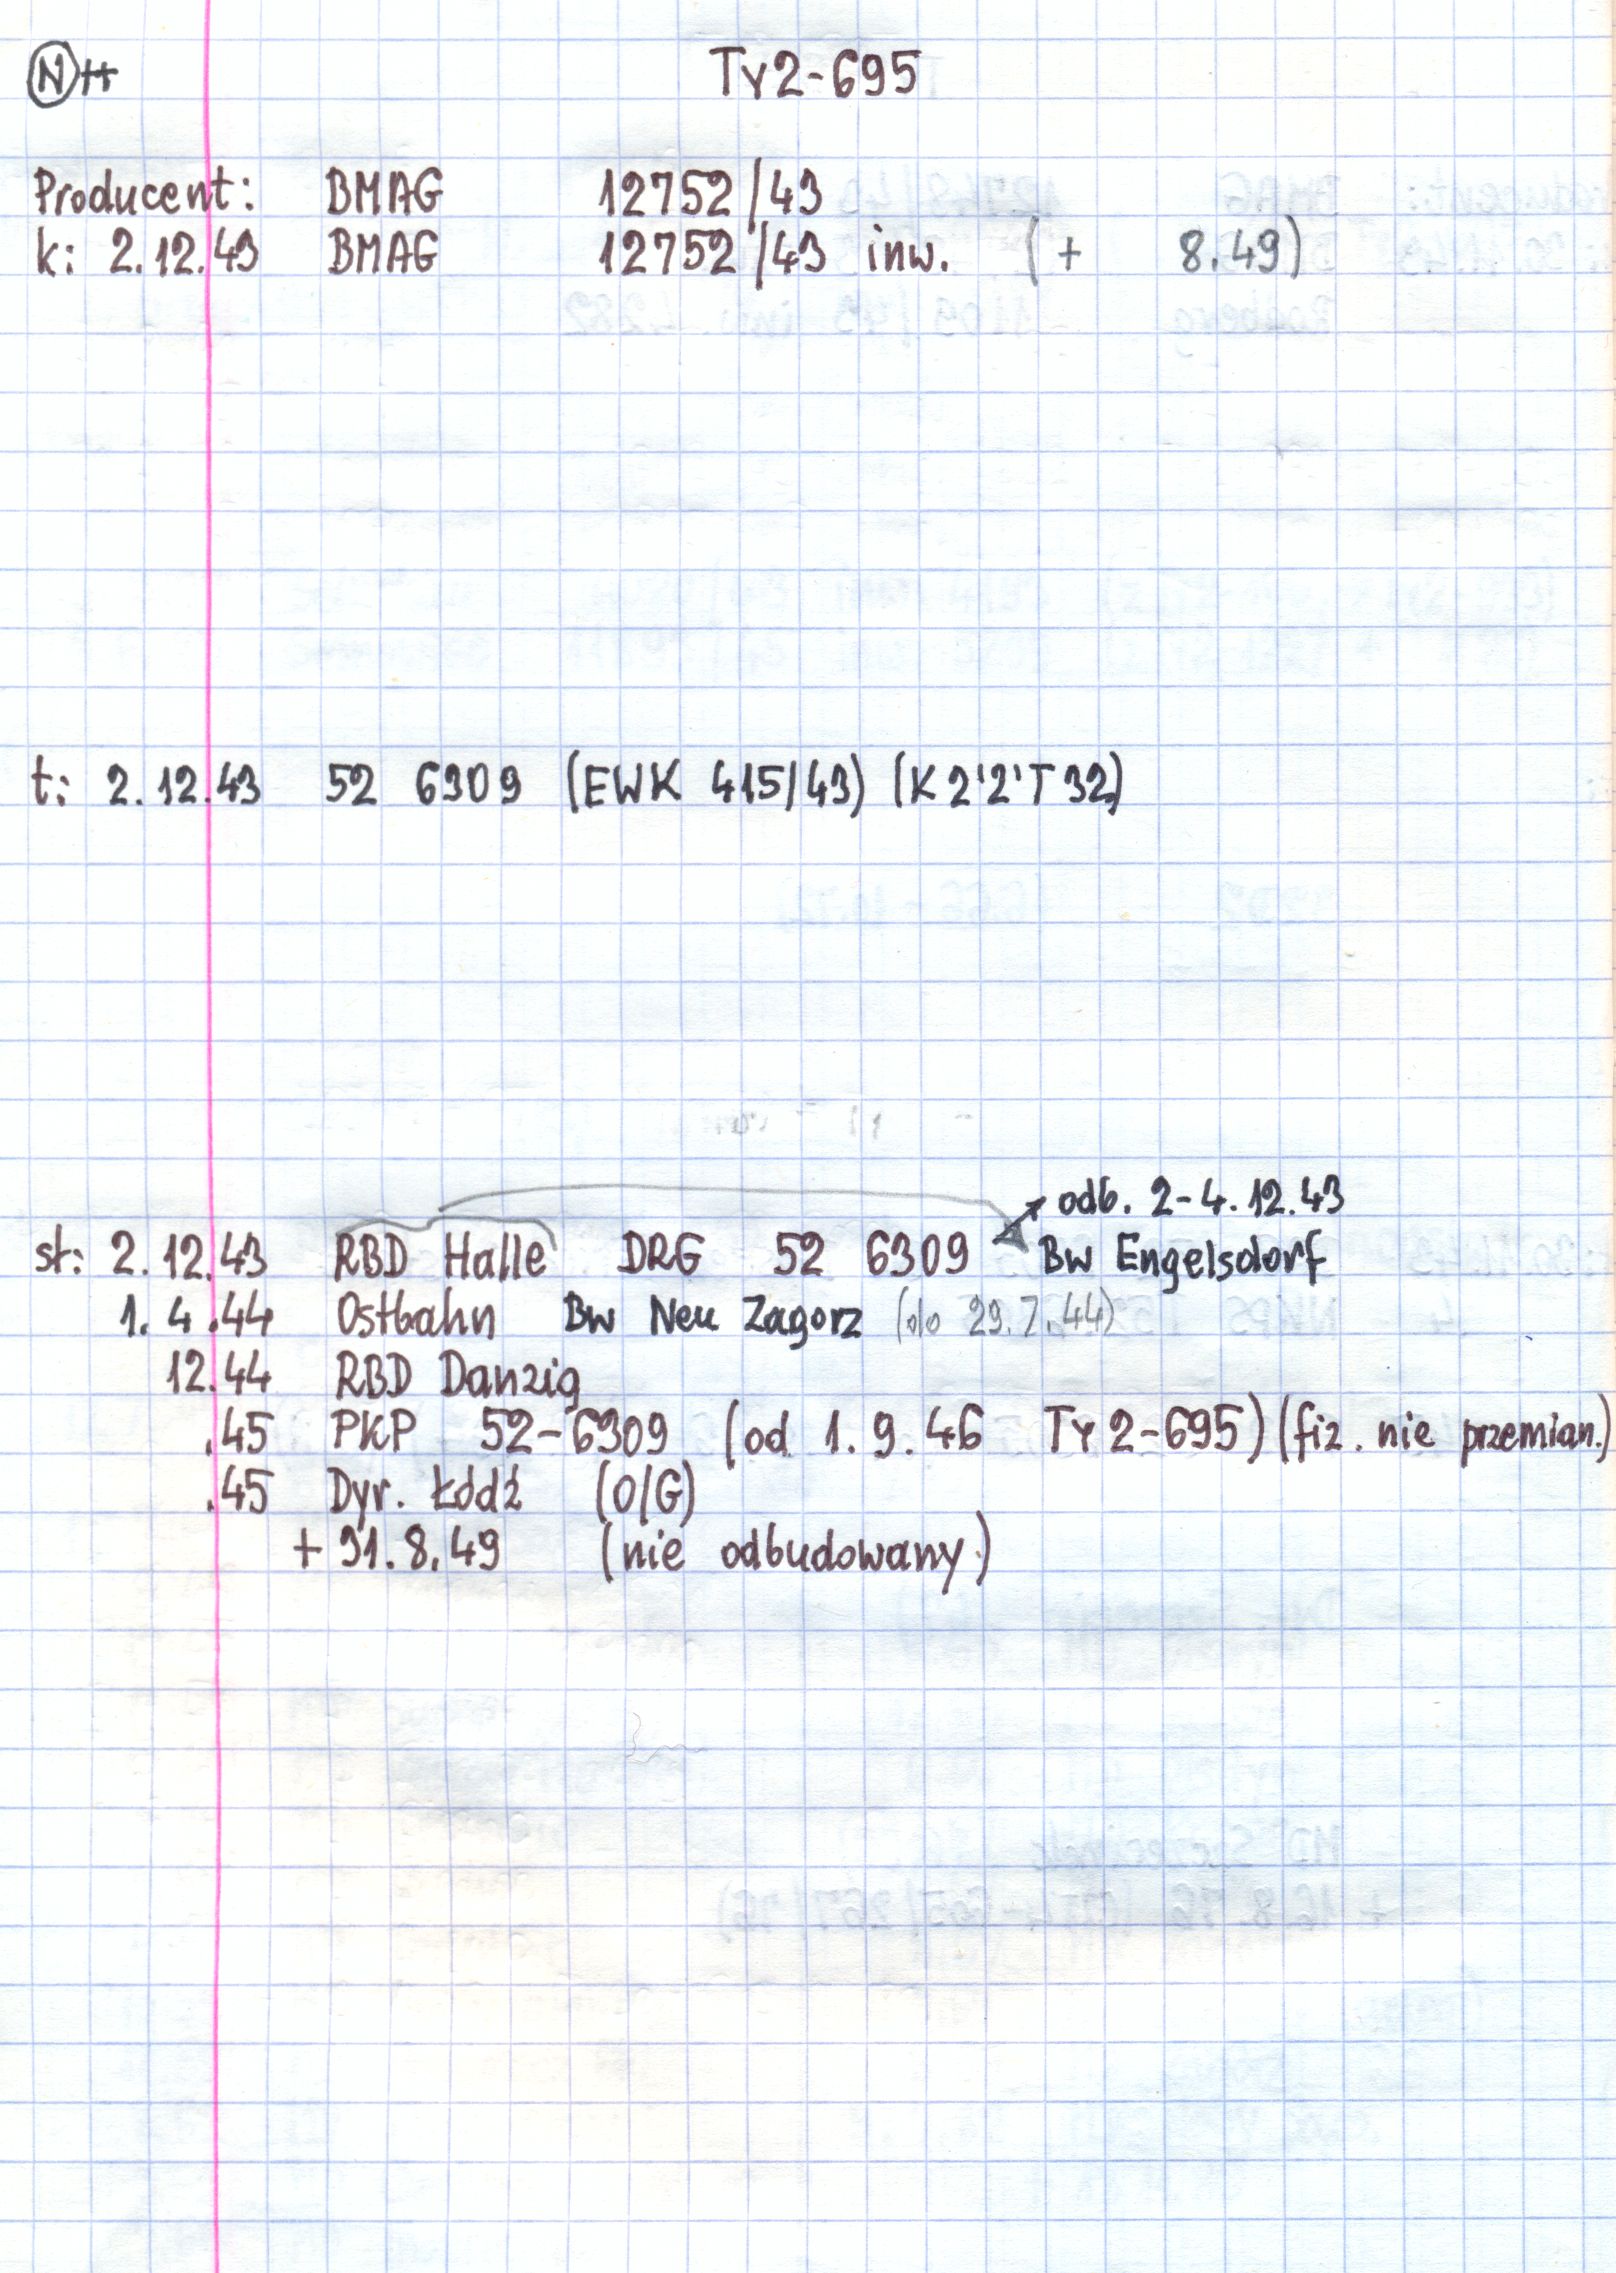 N H Ty2-695
Producent: BMAG 12752/43
k: 2.12.43 BMAG 12752/43 inw. (+ 8.49)
t: 2.12.43 52 6309 (EWK 415/43) (K2'2'T32)
odb. 2-4.12.43
st: 2.12.43 RBD Halle DRG 52 6309 Bw Engelsdorf
1.4.44 Ostbahn Bw Neu Zagorz (do 29.7.44)
12.44 RBD Danzig
.45 PKP 52-6309 (od 1.9.46 Ty2-695) (fiz. nie przemian.)
.45 Dyr. Łódź (O/G)
+ 31.8.49 (nie odbudowany)